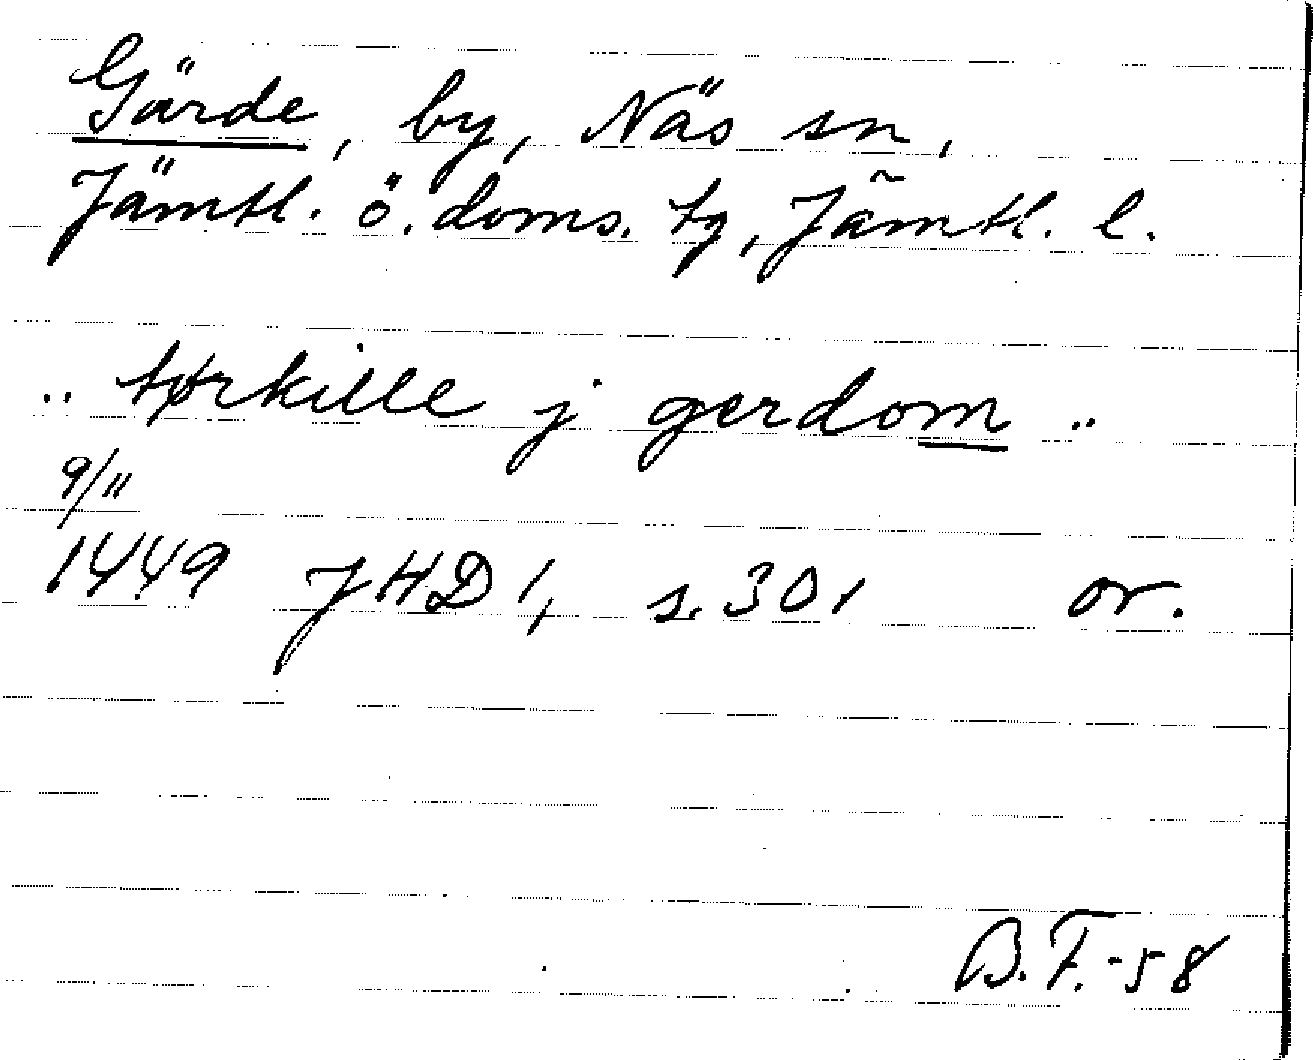 Gärde, by, Näs sn,
Jämtl. ö. doms. tg, Jämtl. l.
.. tørkille j gerdom ..
9/11
1449 JHD 1, s. 301 or.
B.F.-58